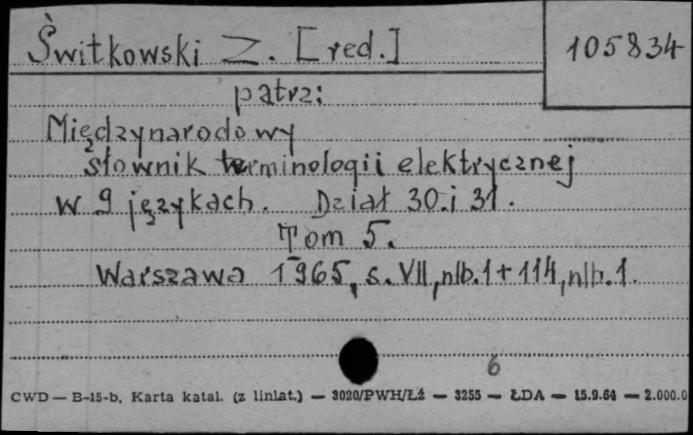 Świtkowski Z. [red.] 105834
patrz:
Międzynarodowy
słownik terminologii elektrycznej
w 9 językach. Dział 30.i 31.
Tom 5.
Warszawa 1965, s. VII, nlb.1+114, nlb.1.
6
CWD — B-15-b. Karta katal. (z liniat.) — 3020/PWH/ŁŻ — 3255 — ŁDA — 15.9.64 — 2.000.0